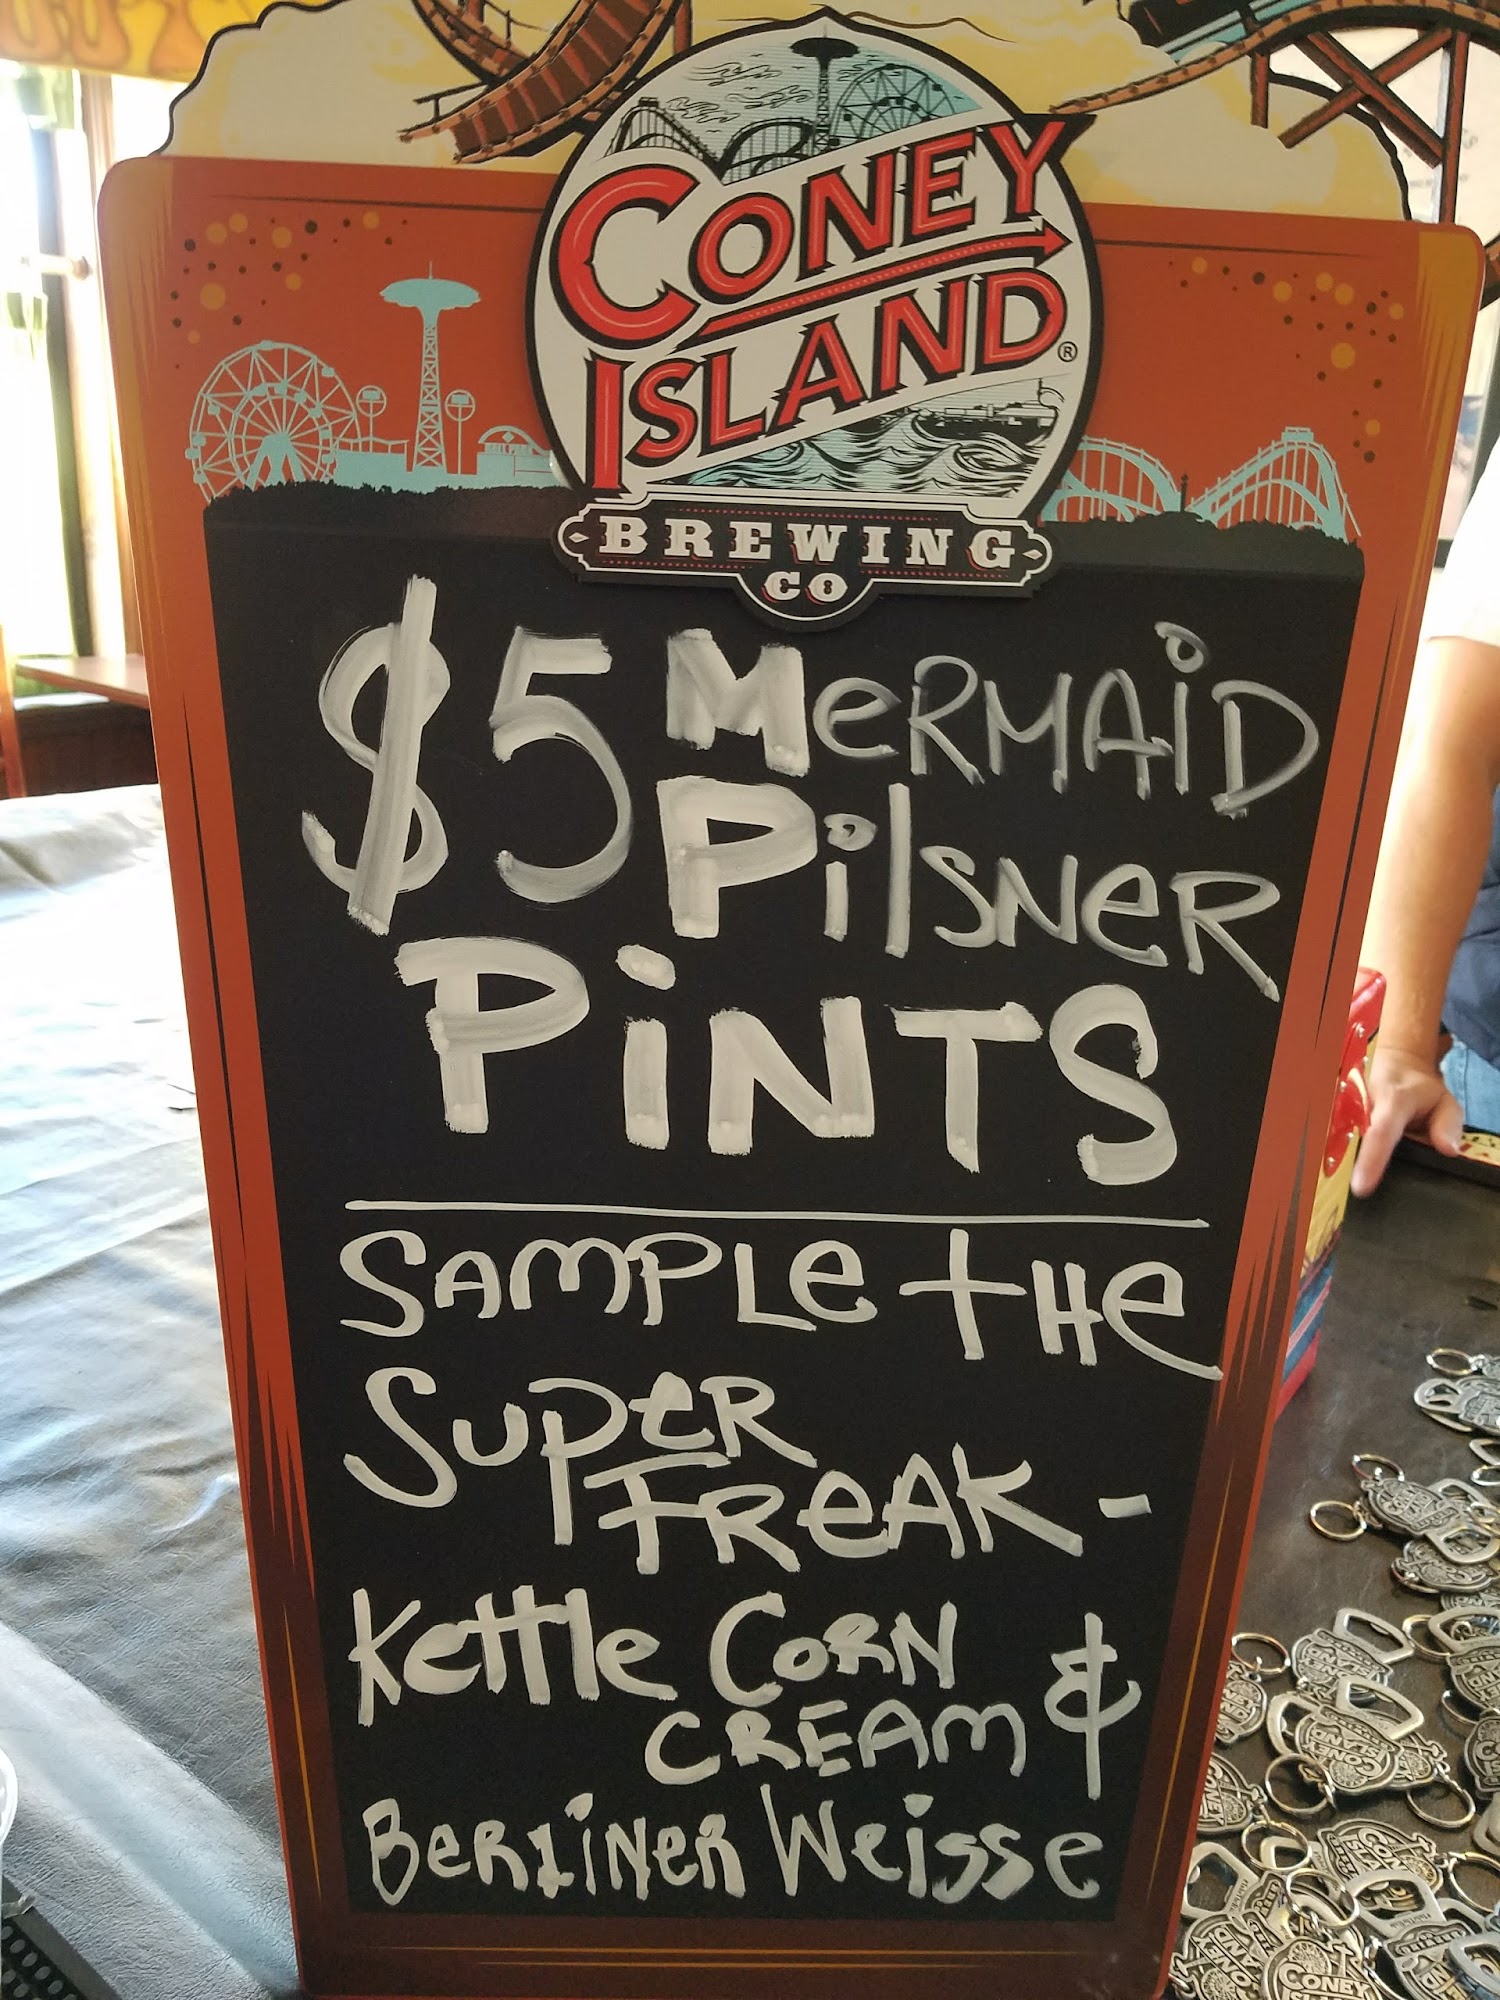 CONEY
ISLAND®
BREWING
CO
$5 MERMAID
PILSNER
PINTS
SAMPLE THE
SUPER
FREAK -
KETTLE CORN
CREAM &
BERLINER WEISSE